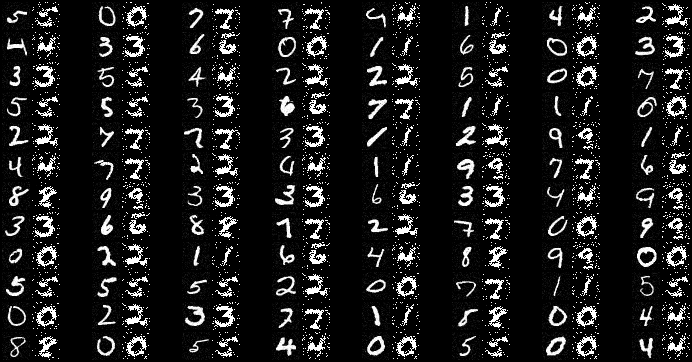 5 5 0 0 7 7 7 7 4 4 1 1 4 4 2 2
4 4 3 3 6 6 0 0 1 1 6 6 0 0 3 3
3 3 5 5 4 4 2 2 2 2 5 5 0 0 7 7
5 5 5 5 3 3 6 6 7 7 1 1 1 1 0 0
2 2 7 7 7 7 3 3 1 1 2 2 9 9 1 1
4 4 7 7 2 2 4 4 1 1 9 9 7 7 6 6
8 8 9 9 3 3 3 3 6 6 3 3 4 4 9 9
3 3 6 6 8 8 7 7 2 2 7 7 0 0 9 9
0 0 2 2 1 1 6 6 4 4 8 8 9 9 0 0
5 5 5 5 5 5 2 2 0 0 7 7 1 1 5 5
0 0 2 2 3 3 7 7 1 1 8 8 0 0 4 4
8 8 0 0 5 5 4 4 0 0 5 5 0 0 4 4